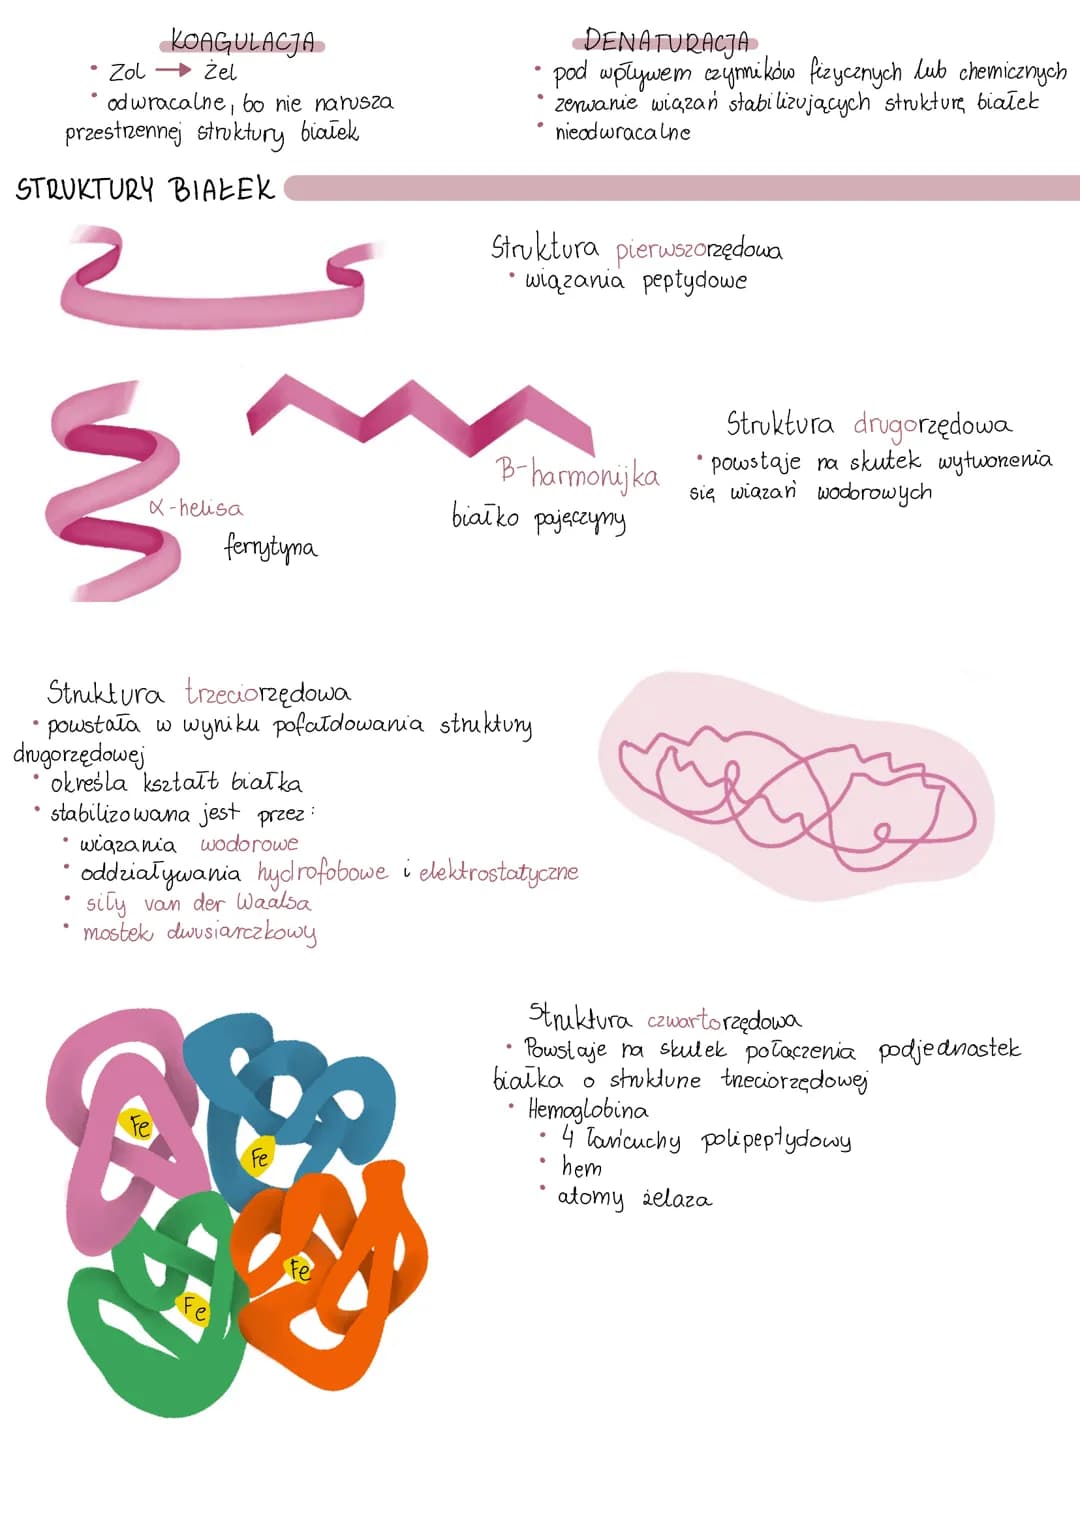 KOAGULACJA
• Zol → żel
• odwracalne, bo nie narusza
przestrzennej struktury białek
DENATURACJA
• pod wpływem czynników fizycznych lub chemicznych
• zerwanie wiązań stabilizujących strukturę białek
• nieodwracalne
STRUKTURY BIAŁEK
Struktura pierwszorzędowa
• wiązania peptydowe
α-helisa
ferrytyna
B-harmonijka
białko pajęczyny
Struktura drugorzędowa
• powstaje na skutek wytworzenia
się wiązań wodorowych
Struktura trzeciorzędowa
• powstała w wyniku pofałdowania struktury
drugorzędowej
• określa kształt białka
• stabilizowana jest przez:
• wiązania wodorowe
• oddziaływania hydrofobowe i elektrostatyczne
• siły van der Waalsa
• mostek dwusiarczkowy
Fe
Fe
Fe
Fe
Struktura czwartorzędowa
• Powstaje na skutek połączenia podjednostek
białka o strukturze trzeciorzędowej
• Hemoglobina
• 4 łańcuchy polipeptydowy
• hem
• atomy żelaza